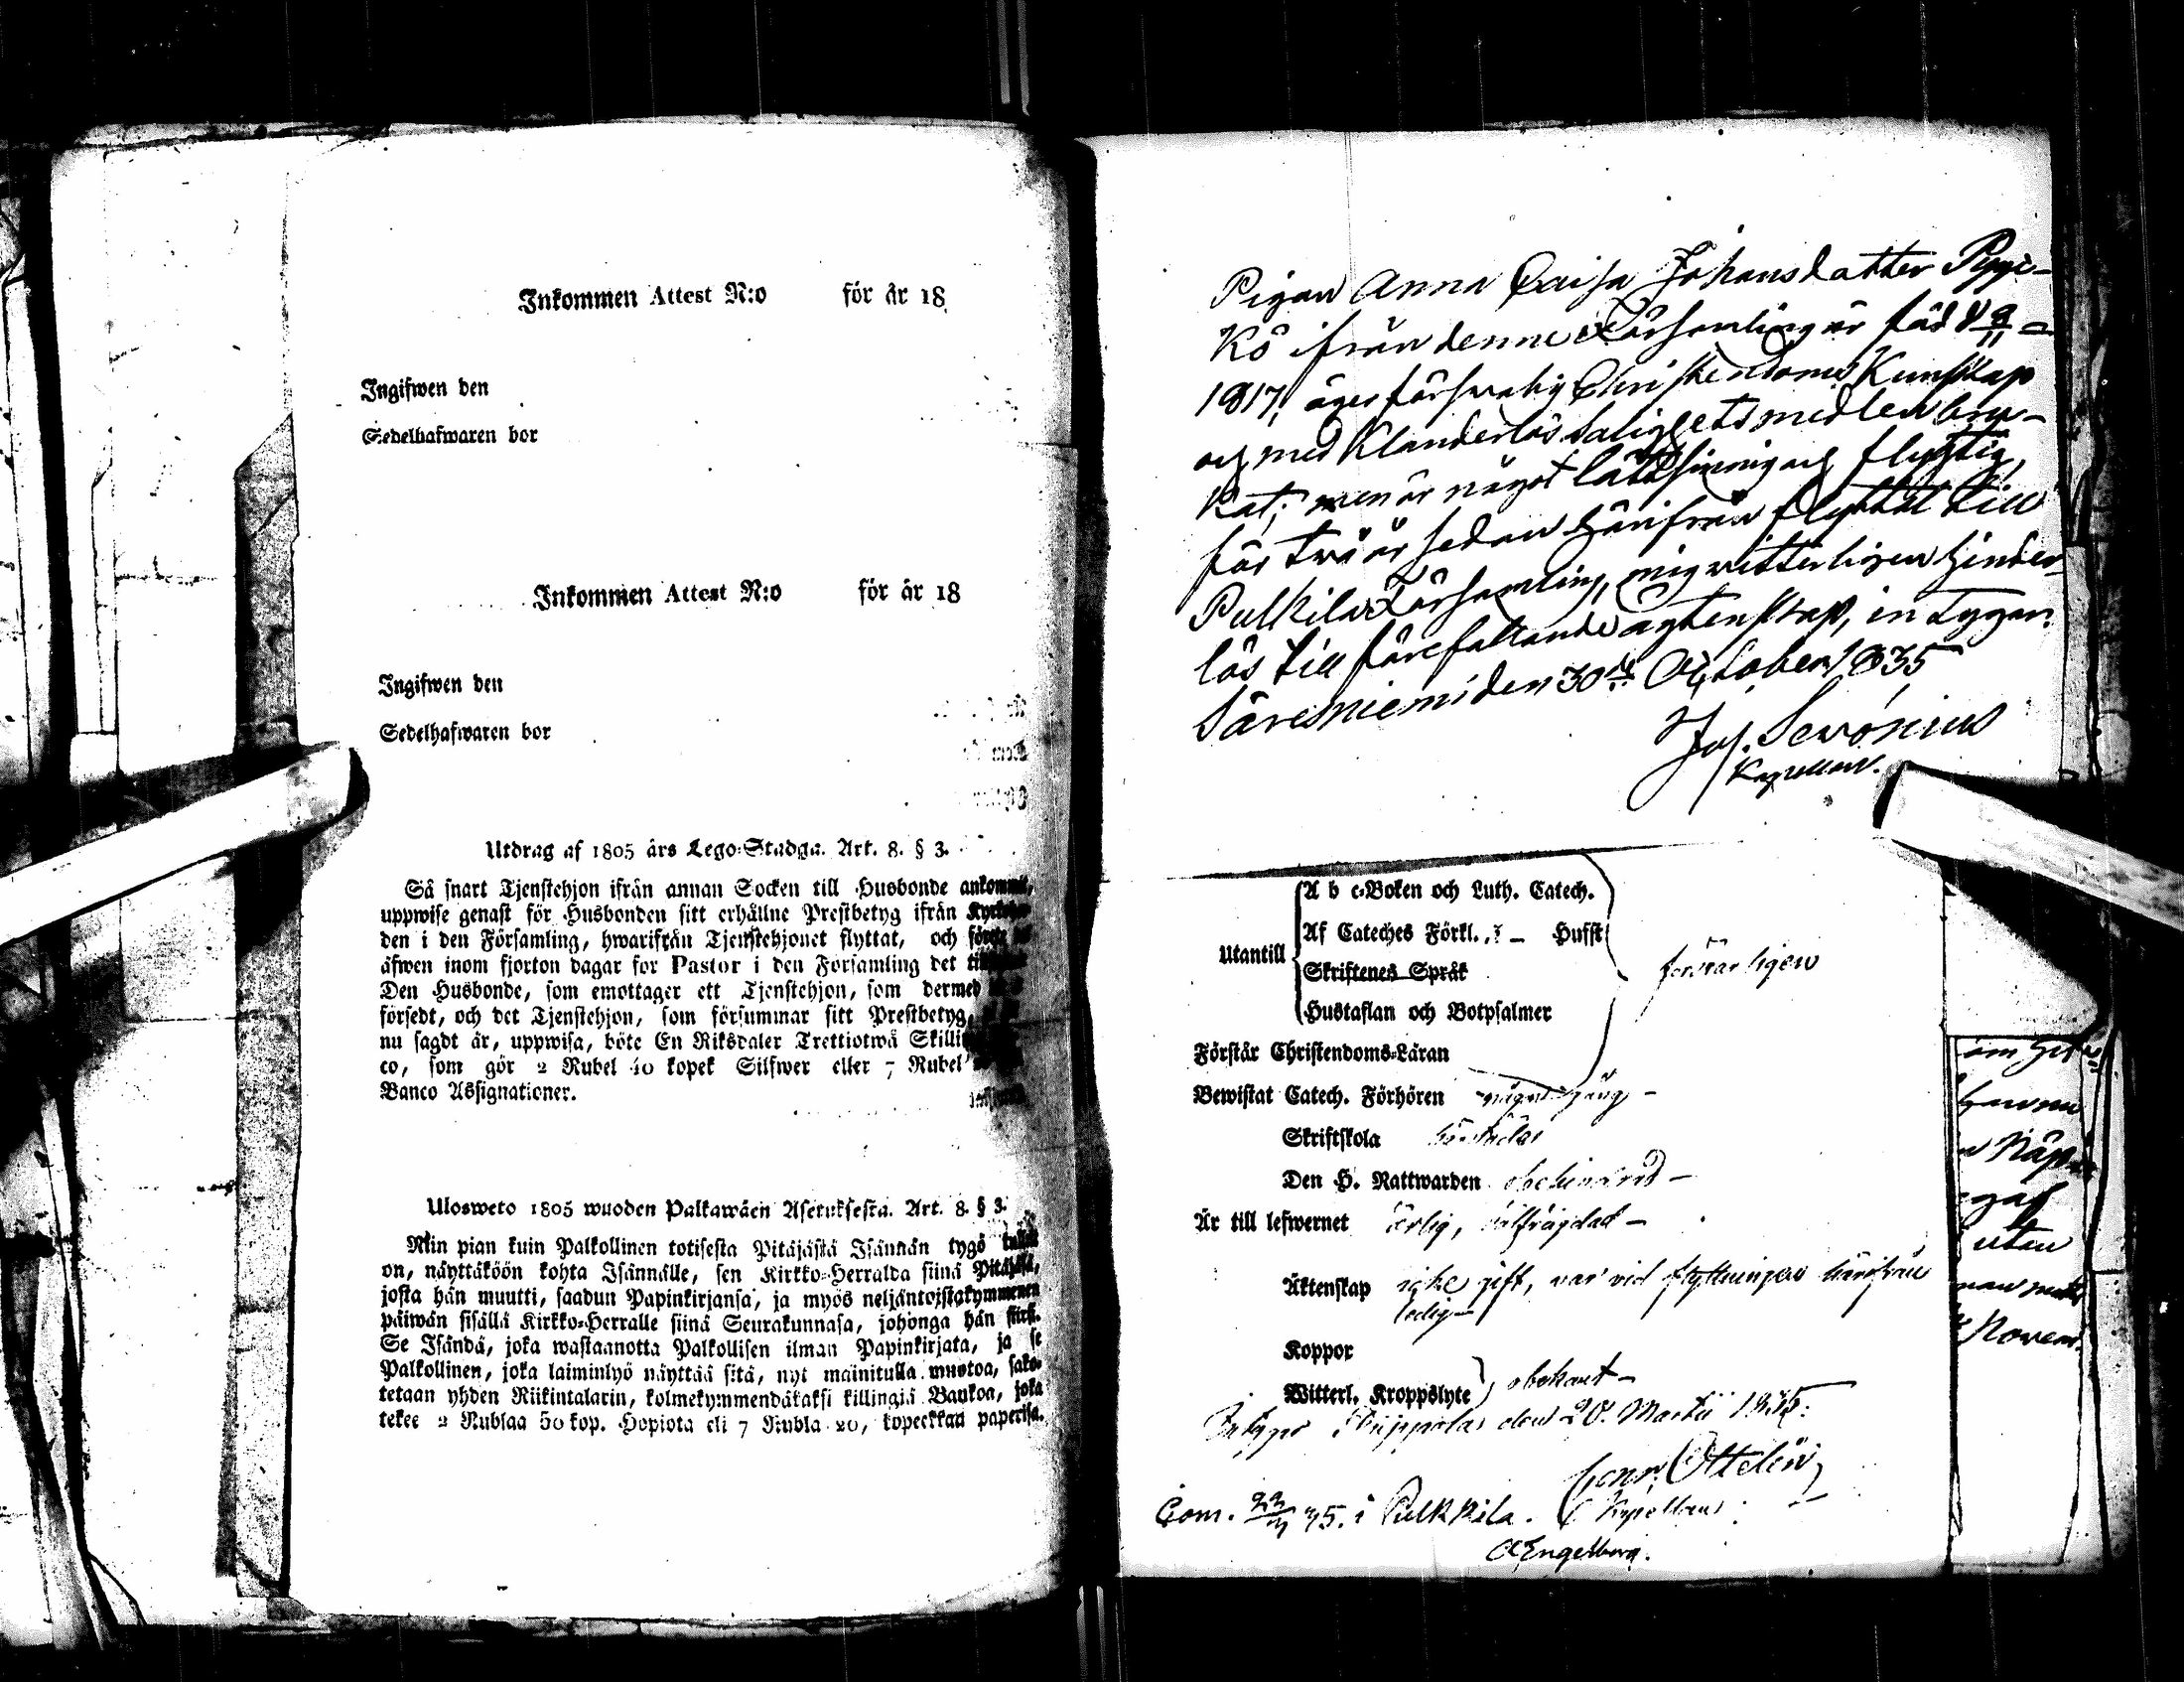 Inkommen Attest N:o för år 18
Ingifwen den
Sedelhafwaren bor
Inkommen Attest N:o för år 18
Ingifwen den
Sedelhafwaren bor
Utdrag af 1805 års Lego-Stadga. Art. 8. § 3.
Så snart Tjenstehjon ifrån annan Socken till Husbonde ankommit,
uppwise genast för Husbonden sitt erhållne Prestbetyg ifrån
den i den Församling, hwarifrån Tjenstehjonet flyttat, och
äfwen inom fjorton dagar for Pastor i den Församling det
Den Husbonde, som emottager ett Tjenstehjon, som dermed
försedt, och det Tjenstehjon, som försummar sitt Prestbetyg,
nu sagdt är, uppwisa, böte En Riksdaler Trettiotwå
co, som gör 2 Rubel 40 kopek Silfwer eller 7 Rubel
Banco Assignationer.
Ulosweto 1805 wuoden Palkawäen Asetuksesta. Art. 8. § 3.
Niin pian kuin Palkollinen totisesta Pitäjästä Isännän tygö tullut
on, näyttäköön kohta Isännälle, sen Kirkko-Herralda siinä Pitäjäsä,
josta hän muutti, saadun Papinkirjansa, ja myös neljäntoistakymmenen
päiwän sisällä Kirkko-Herralle siinä Seurakunnasa, johonga hän siirsi.
Se Isändä, joka wastaanotta Palkollisen ilman Papinkirjata, ja se
Palkollinen, joka laiminlyö näyttää sitä, nyt mainitulla muotoa, sako-
tetaan yhden Riikintalarin, kolmekymmendäkaksi killingiä Bankoa, joka
tekee 2 Rublaa 50 kop. Hopiota eli 7 Rubla 20, kopeekkaa paperisa.
Pigan Anna Caisa Johansdatter Pyyk-
kö ifrån denne Församling är föd d 9/11
1817, äger förswarlig Christendoms Kunskap
och med Klanderlös Salighets medlen bru-
kat; men är något lättsinnig och flygtig,
för twå år sedan härifrån flyttat till
Pulkila Församling, mig witterligen hinder-
lös till förefallande ägtenskap, intygar.
Säresniemi den 30de October 1835
Jos. Serónius
Kapellan.
Utantill
A b c-Boken och Luth. Catech.
Af Cateches Förkl., Husst
Skriftenes Språk
Hustaflan och Botpsalmer
förswarligen
Förstår Christendoms-Läran
Bewistat Catech. Förhören någon gång -
Skriftskola
Den H. Nattwarden obehindrad -
Är till lefwernet ärlig, wälfrägdad -
Äktenskap icke gift, var vid flyttningen härifrån
ledig -
Koppor
Witterl. Kroppslyte obekant -
Intygar den 20. Martii 1835.
Henr. Ottelin
Com. i Pulkkila. Kapellan
Engelberg.
om
Novem.